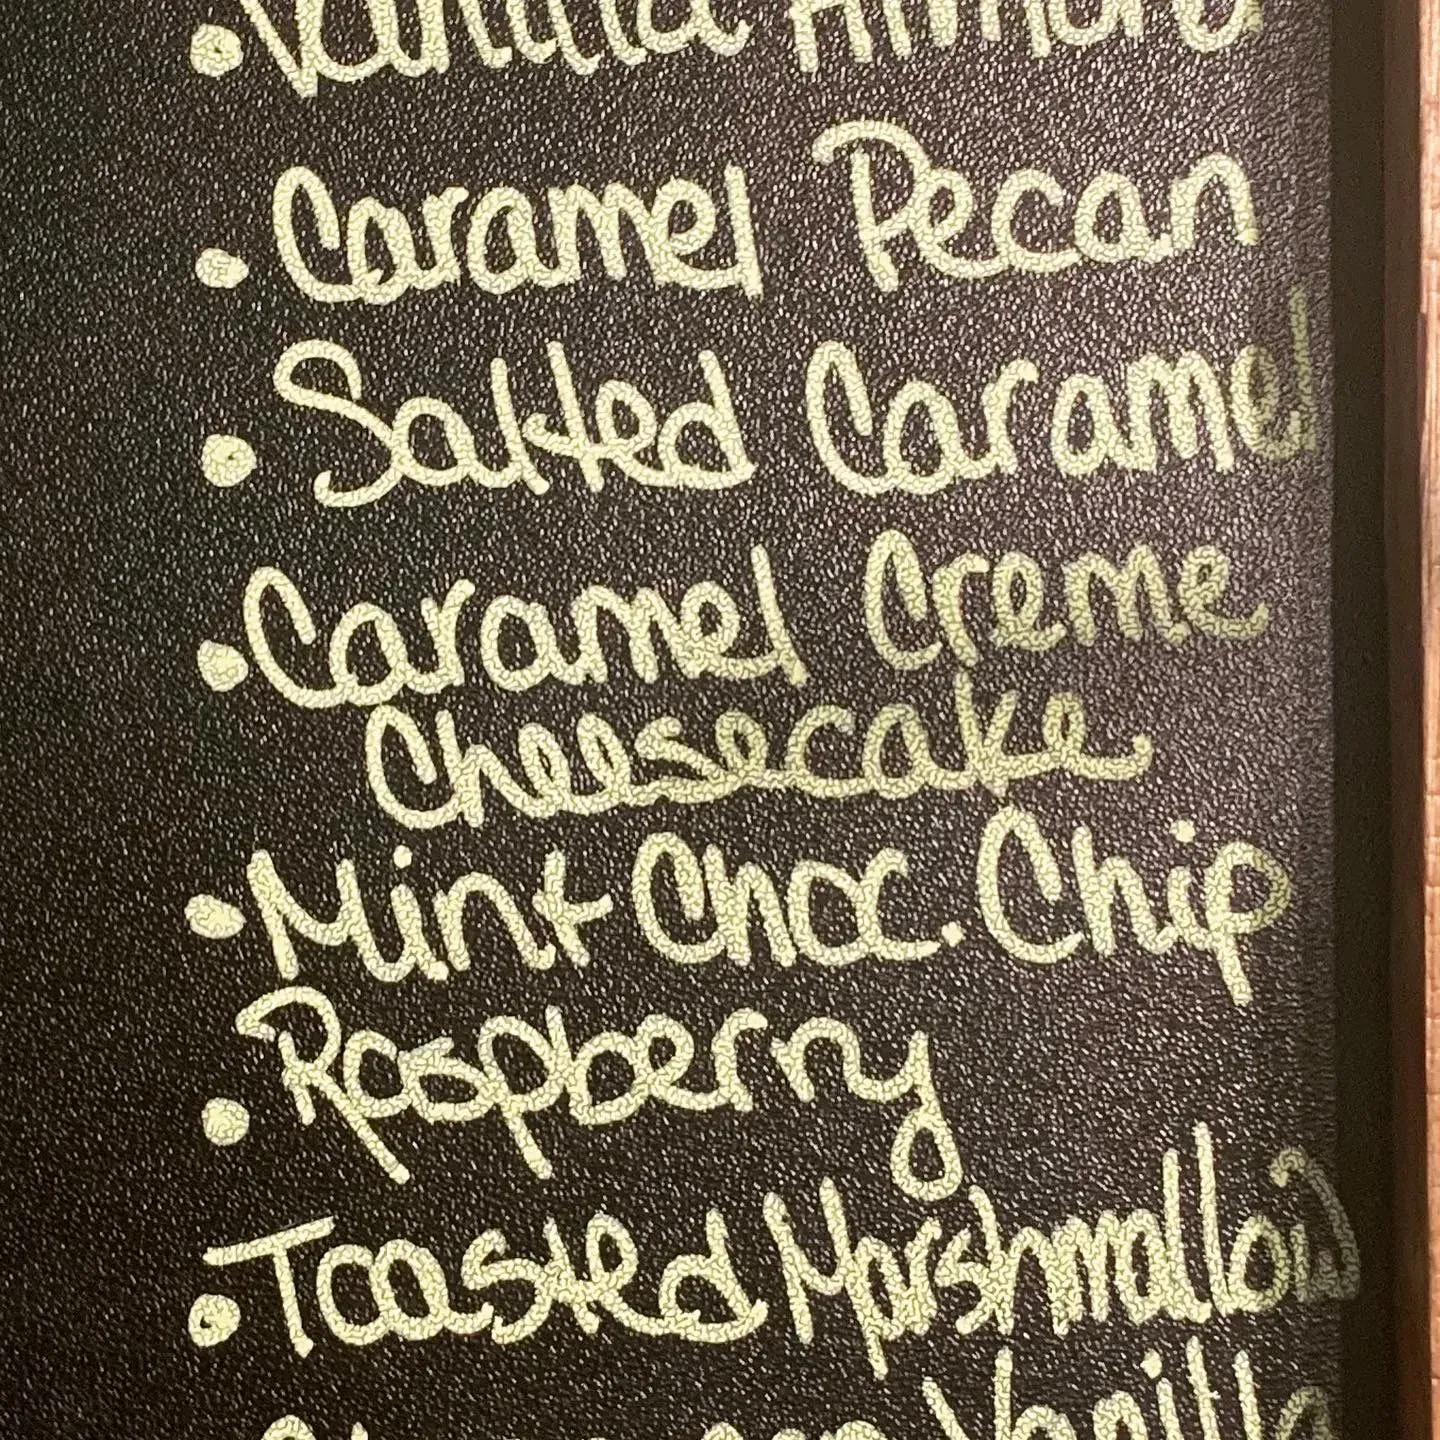 • Vanilla Almond
• Caramel Pecan
• Salted Caramel
• Caramel Creme
Cheesecake
• Mint Choc. Chip
• Raspberry
• Toasted Marshmallow
Vanilla